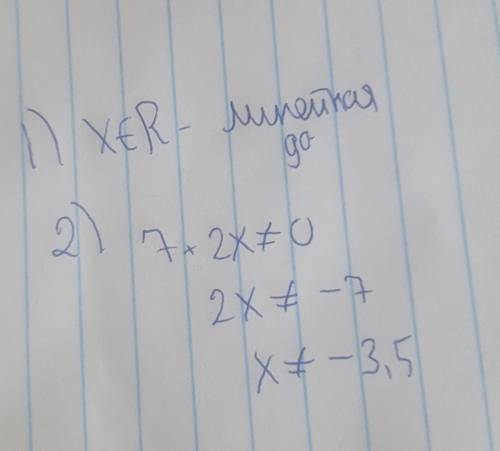 1) X∈R - линейная
до
2) 7 + 2X ≠ 0
2X ≠ -7
X ≠ -3,5